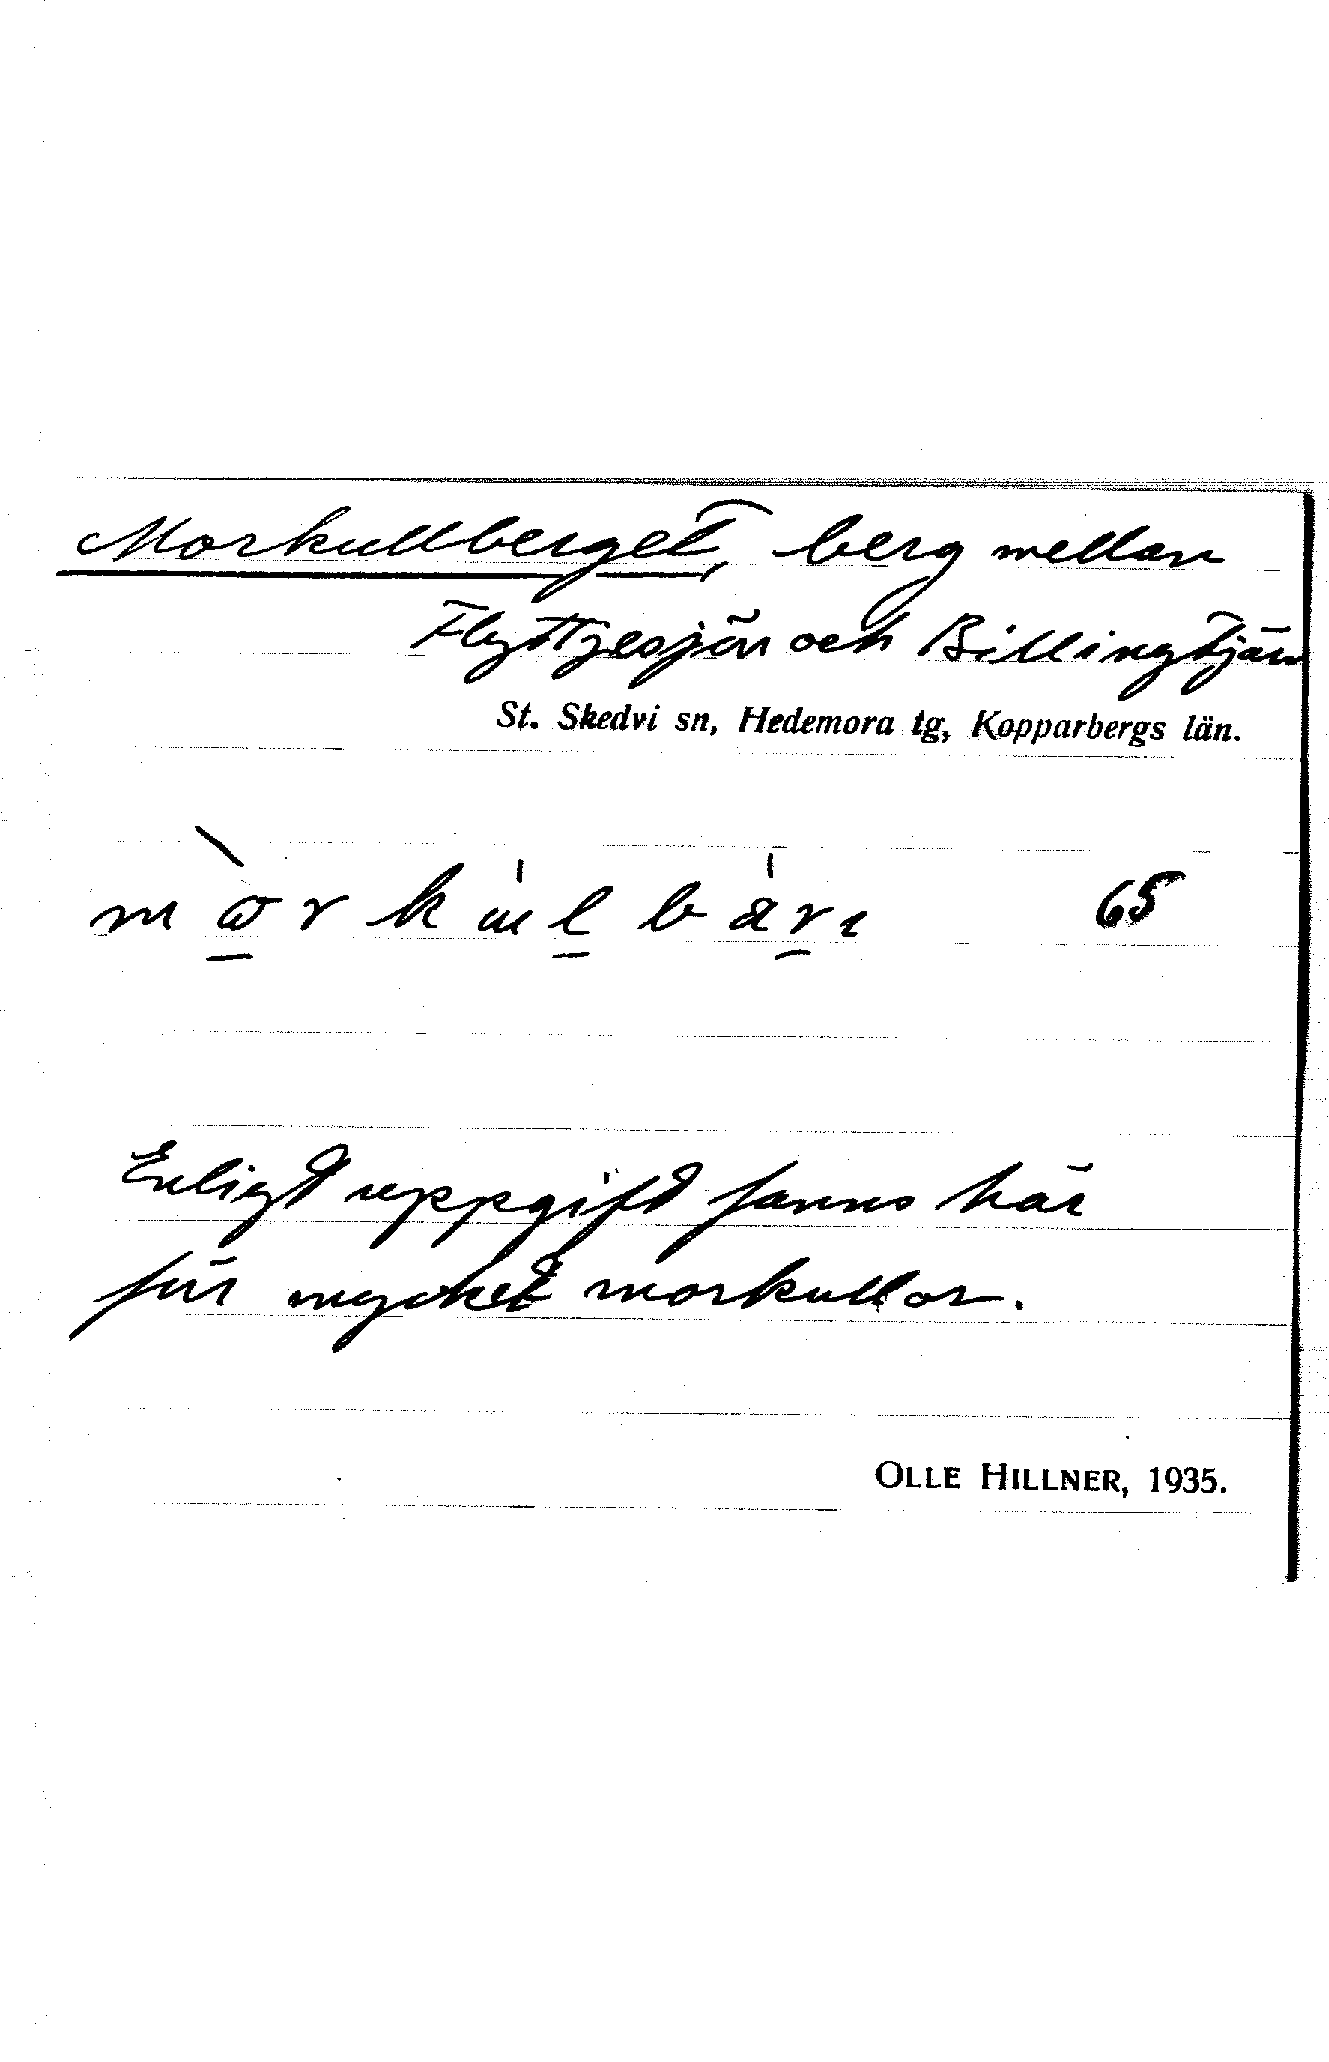 Morkullberget, berg mellan
Flyttjesjön och Billingtjärn
St. Skedvi sn, Hedemora tg, Kopparbergs län.
65
Enligt uppgift fanns här
förr mycket morkullor.
OLLE HILLNER, 1935.